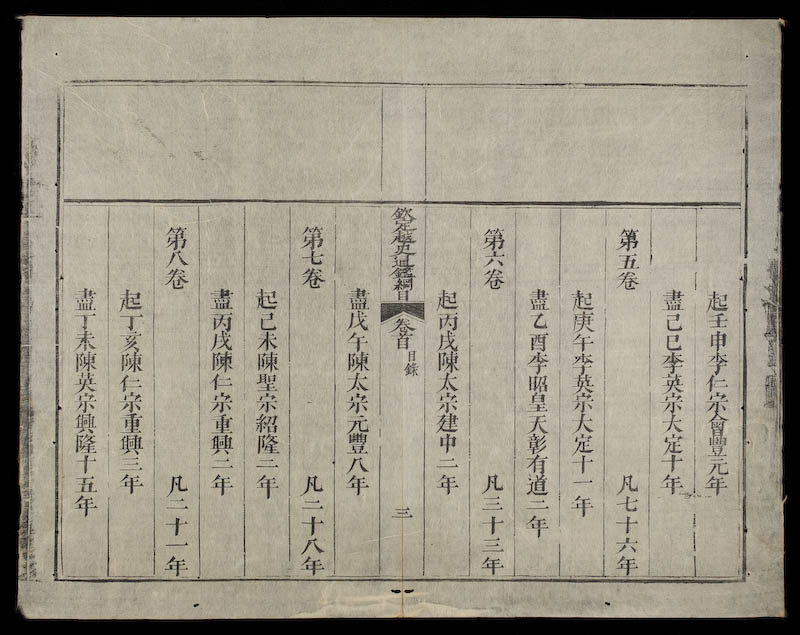 起壬申李仁宗會豐元年
盡己巳李英宗大定十年
第五卷 凡七十六年
起庚午李英宗大定十一年
盡乙酉李昭皇天彰有道二年
第六卷 凡三十三年
起丙戌陳太宗建中二年
欽定越史通鑑綱目 卷首 目錄 三
盡戊午陳太宗元豐八年
第七卷 凡二十八年
起己未陳聖宗紹隆二年
盡丙戌陳仁宗重興二年
第八卷 凡二十一年
起丁亥陳仁宗重興三年
盡丁未陳英宗興隆十五年